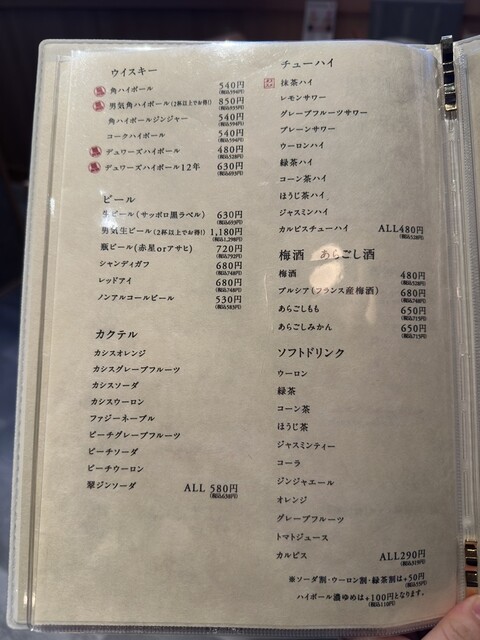 ウイスキー
角ハイボール 540円
(税込594円)
男気角ハイボール(2杯以上でお得!) 850円
(税込935円)
角ハイボールジンジャー 540円
(税込594円)
コークハイボール 540円
(税込594円)
デュワーズハイボール 480円
(税込528円)
デュワーズハイボール12年 630円
(税込693円)
ビール
生ビール(サッポロ黒ラベル) 630円
(税込693円)
男気生ビール(2杯以上でお得!) 1,180円
(税込1,298円)
瓶ビール(赤星orアサヒ) 720円
(税込792円)
シャンディガフ 680円
(税込748円)
レッドアイ 680円
(税込748円)
ノンアルコールビール 530円
(税込583円)
カクテル
カシスオレンジ
カシスグレープフルーツ
カシスソーダ
カシスウーロン
ファジーネーブル
ピーチグレープフルーツ
ピーチソーダ
ピーチウーロン
翠ジンソーダ ALL 580円
(税込638円)
チューハイ
抹茶ハイ
レモンサワー
グレープフルーツサワー
プレーンサワー
ウーロンハイ
緑茶ハイ
コーン茶ハイ
ほうじ茶ハイ
ジャスミンハイ
カルピスチューハイ ALL480円
(税込528円)
梅酒 あらごし酒
梅酒 480円
(税込528円)
プルシア(フランス産梅酒) 680円
(税込748円)
あらごしもも 650円
(税込715円)
あらごしみかん 650円
(税込715円)
ソフトドリンク
ウーロン
緑茶
コーン茶
ほうじ茶
ジャスミンティー
コーラ
ジンジャエール
オレンジ
グレープフルーツ
トマトジュース
カルピス ALL290円
(税込319円)
※ソーダ割・ウーロン割・緑茶割は+50円
(税込55円)
ハイボール濃ゆめは+100円となります。
(税込110円)